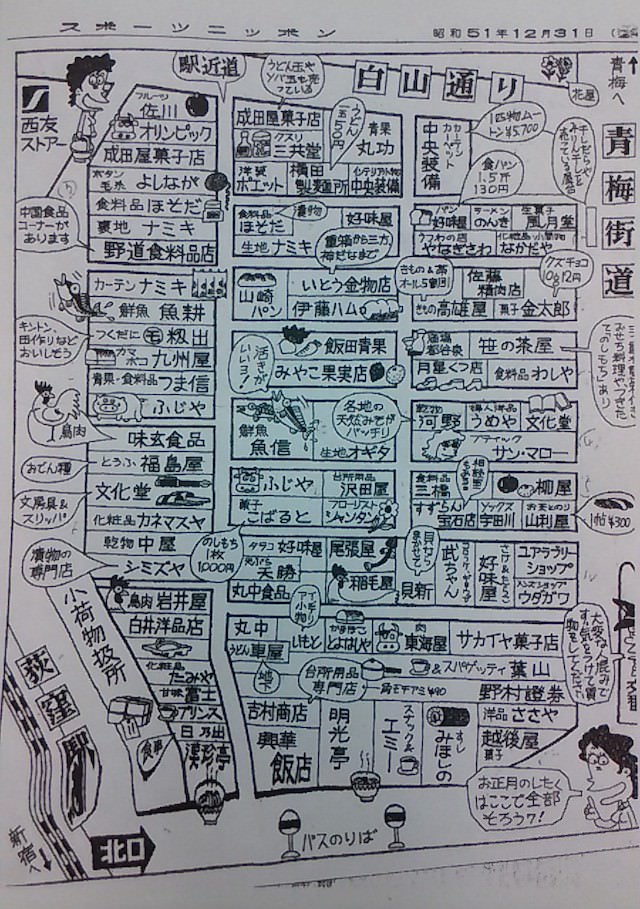 スポーツニッポン
昭和51年12月31日
駅近道
白山通り
青梅へ
青梅街道
花屋
西友
ストアー
フルーツ
佐川
オリンピック
成田屋菓子店
ボタン
毛糸
よしなが
食料品
ほそだ
裏地
ナミキ
野道食料品店
中国食品
コーナーが
あります
うどん玉や
ソバ玉も売
っている
成田屋菓子店
クスリ
三共堂
うどん
一玉50円
青果
丸功
洋装
ポエット
横田
製麺所
インテリア小物
中央装備
カーテン
カーペット
中央装備
1匹物ムー
トン¥5,700
食パン
1.5斤
130円
食料品
ほそだ
漬物
好味屋
生地
ナミキ
重箱から三方
神だなまで
パン
好味屋
ラーメン
のんき
生菓子
風月堂
うつわの店
やなぎさわ
なかだや
カーテン
ナミキ
鮮魚
魚耕
山崎
パン
いとう金物店
伊藤ハム
きもの&茶
オール5割引
佐藤
精肉店
クズチョコ
10g12円
きもの
高雄屋
菓子
金太郎
キントン、
田作りなど
おいしそう
つくだに
籾出
カマ
ボコ
九州屋
青果・食料品
つま信
活きが
いいヨ!
飯田青果
みやこ果実店
酒場
都谷泉
笹の茶屋
月星くつ店
食料品
わしや
鳥肉
ふじや
味玄食品
鮮魚
魚信
各地の
天然みそが
バッチリ
生地
オギタ
乾物
河野
婦人洋品
うめや
文化堂
ブティック
サン・マロー
おでん種
とうふ
福島屋
文房具&
スリッパ
文化堂
化粧品
カネマスヤ
ふじや
台所用品
沢田屋
菓子
こばると
フローリスト
シャンタン
食料品
三橋
柳屋
すずらん
宝石店
ソックス
宇田川
お茶とのり
山利屋
1帖¥300
漬物の
専門店
乾物
中屋
シミズヤ
のしもち
1枚
1,000円
タラコ
好味屋
尾張屋
天勝
丸中食品
稲毛屋
貝なら
まかせて!
貝新
武ちゃん
好味屋
ユアラブリー
ショップ
メンズショップ
ウダガワ
小荷物扱所
鳥肉
岩井屋
白井洋品店
化粧品
たみや
甘味
富士
プリンス
日乃出
漢珍亭
食事
丸中
うどん
東屋
地下
イキな
小物
いもと
かまぼこ
とよはしや
肉
東海屋
サカイヤ菓子店
台所用品
専門店
&スパゲッティ
葉山
角モチアミ¥90
野村證券
吉村商店
興華
飯店
明光亭
スナック&
エミー
すし
みほしの
洋品
ささや
越後屋
菓子
お正月のしたく
はここで全部
そろうワ!
荻窪駅
新宿へ
北口
バスのりば